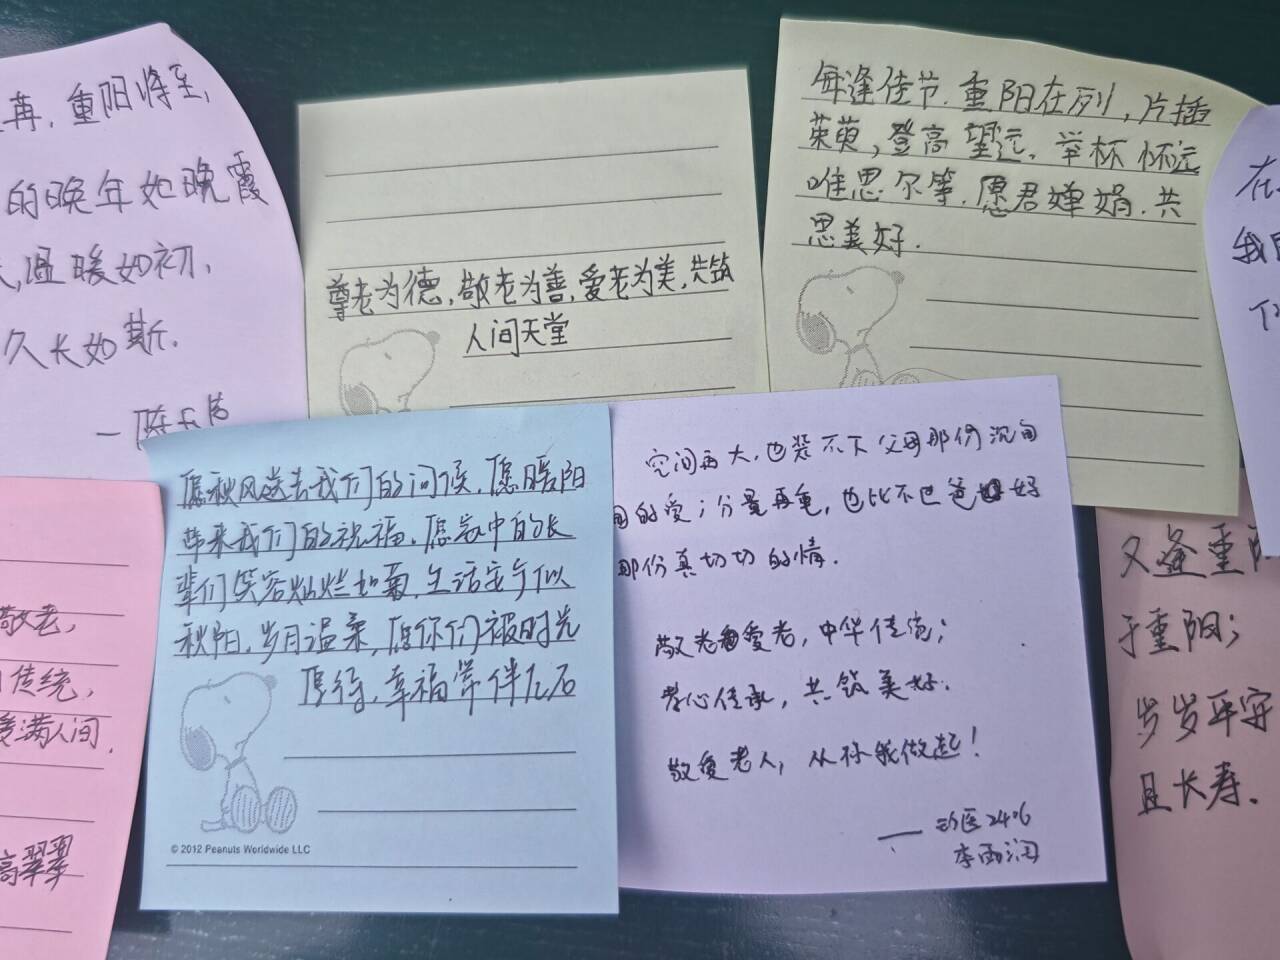 苒，重阳将至，
的晚年如晚霞
温暖如初，
久长如斯．
尊老为德，敬老为善，爱老为美，共筑
人间天堂
每逢佳节．重阳在列，片插
茱萸，登高望远．举杯怀远
唯思尔等．愿君婵娟．共
思美好．
在
我
愿秋风送去我们的问候，愿暖阳
带来我们的祝福．愿家中的长
辈们笑容灿烂如菊，生活安宁似
秋阳，岁月温柔，愿你们被时光
厚待，幸福常伴左右
© 2012 Peanuts Worldwide LLC
空间再大，也装不下父母那份沉甸
甸的爱；分量再重，也比不巴爸好
那份真切切的情．
敬老爱老，中华传统；
孝心传承，共筑美好．
敬爱老人，从你我做起！
——动医2406
李雨润
敬老，
传统，
爱满人间．
高翠翠
又逢重阳
于重阳；
岁岁平安
且长寿．